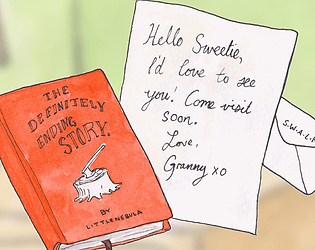 THE
DEFINITELY
ENDING
STORY.
BY
LITTLENEBULA
Hello Sweetie,
I'd love to see
you! Come visit
soon.
Love,
Granny xo
S.W.A.L.K